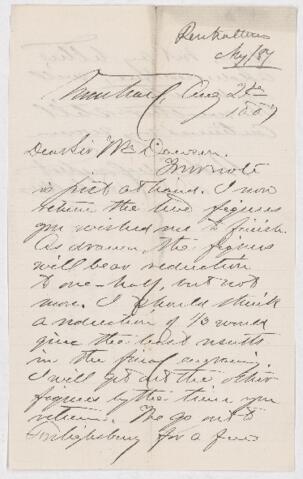 Aug 2d
1887
Dear Sir Wm Dawson.
Your note
is just at hand. I now
return the two figures
you wished me to finish.
As drawn, the figures
will bear reduction
to one-half, but not
more. I should think
a reduction of 1/3 would
give the best results
in the final engraving.
I will get out the other
figures by the time you
return. We go out to
for a few